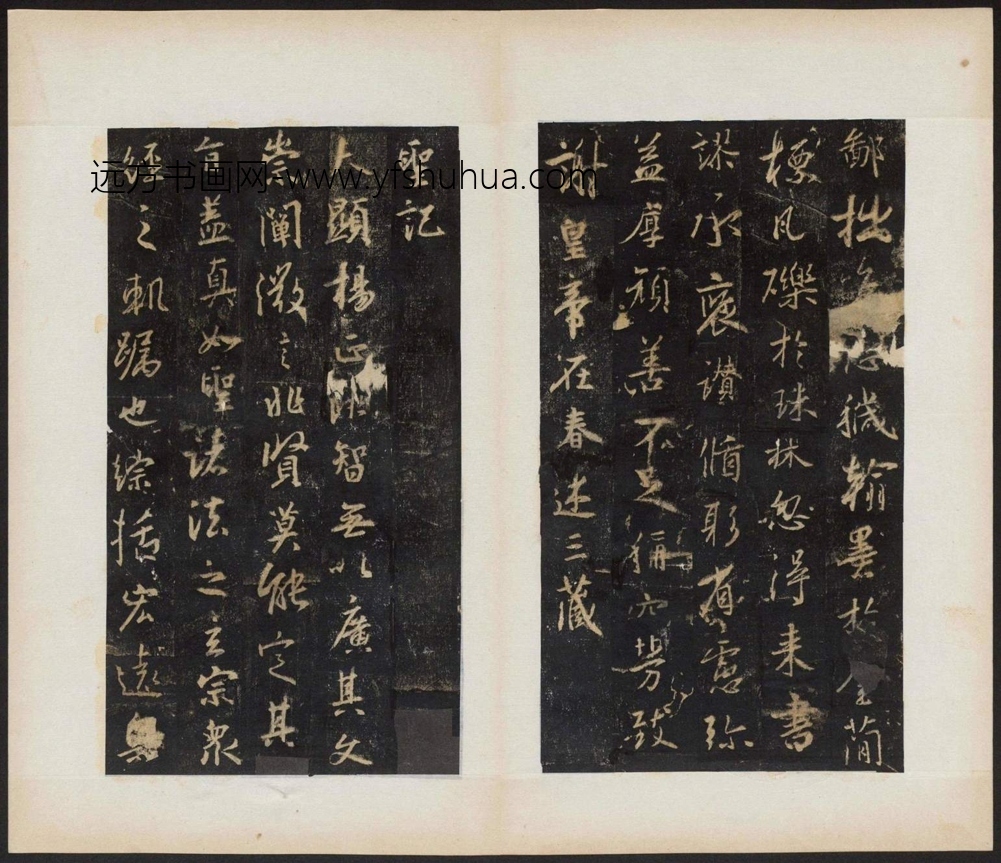 鄙拙尤恐穢翰墨於金簡
標凡礫於珠林忽得來書
謬承褒讚循躬省慮弥
益厚顔善不足稱空勞致
謝皇帝在春述三藏
聖記
夫顯揚正教非智無以廣其文
崇闡微言非賢莫能定其
旨蓋真如聖教者諸法之玄宗衆
經之軌躅也綜括宏遠奥
远方书画网 www.yfshuhua.com